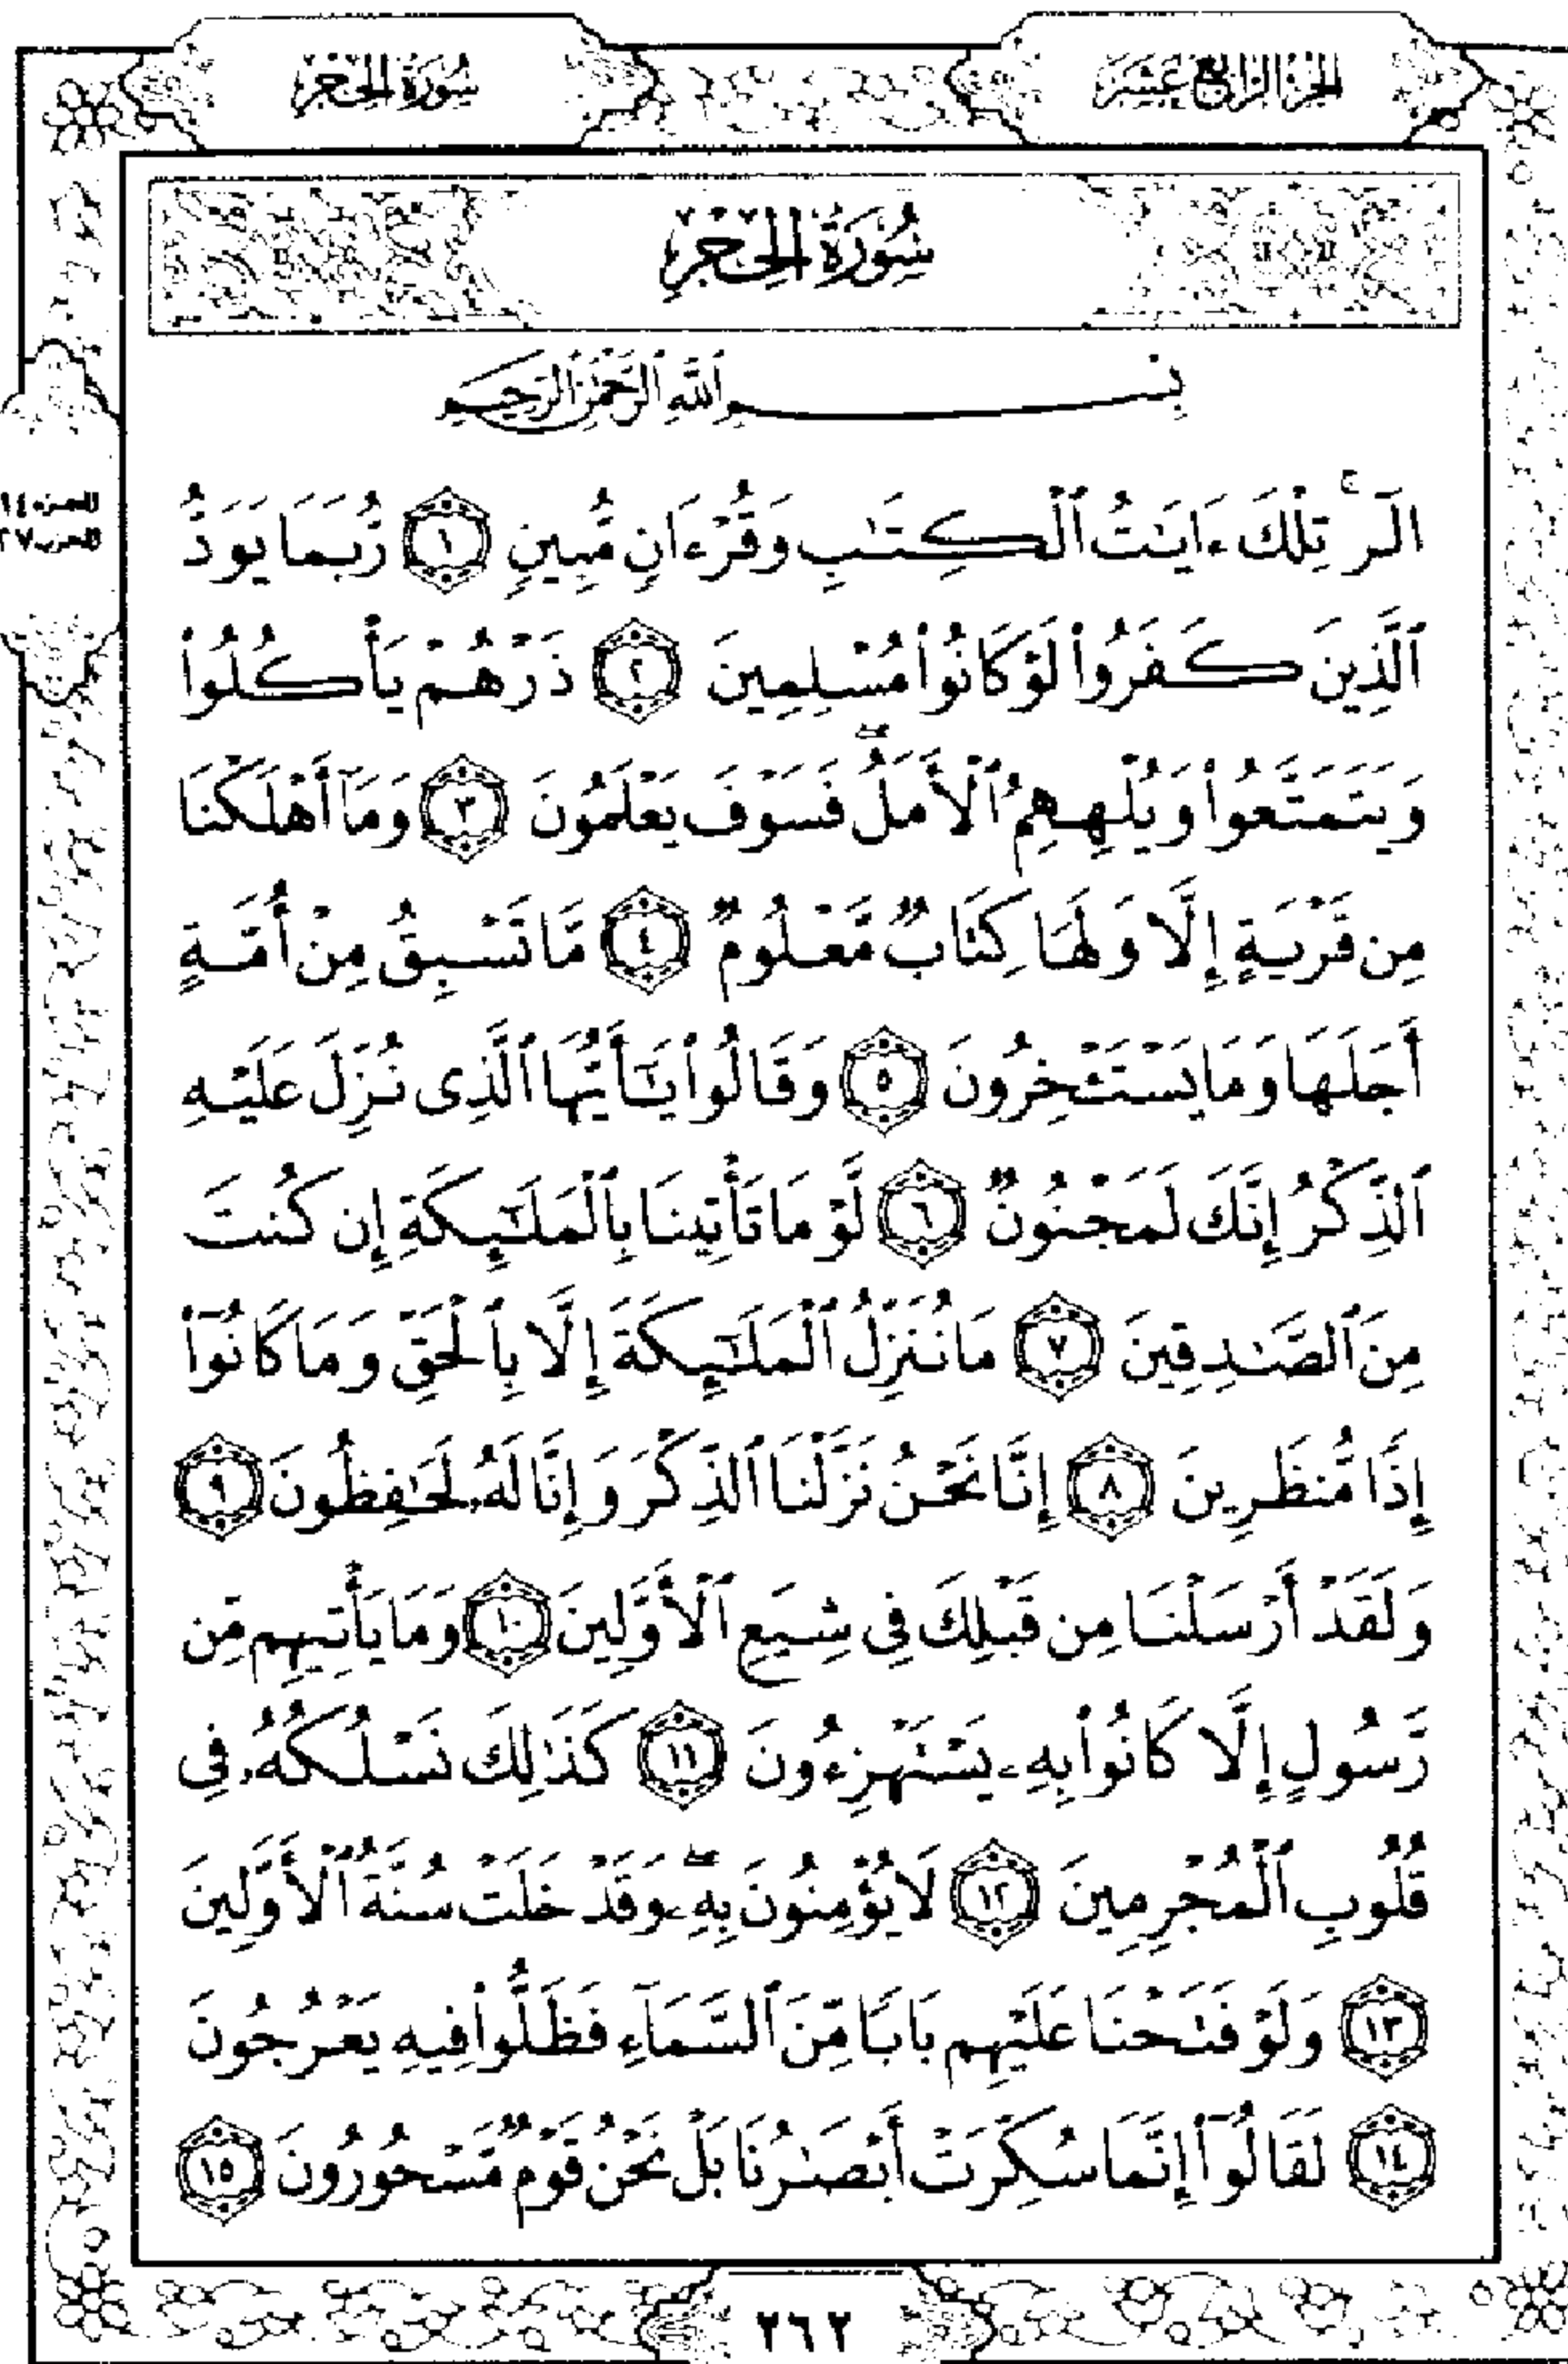 الجزء الرابع عشر
سورة الحجر
سُورَةُ الحِجْرِ
بِسْمِ ٱللَّهِ ٱلرَّحْمَٰنِ ٱلرَّحِيمِ
الٓرۚ تِلْكَ ءَايَٰتُ ٱلْكِتَٰبِ وَقُرْءَانٍ مُّبِينٍ ١ رُّبَمَا يَوَدُّ
ٱلَّذِينَ كَفَرُوا۟ لَوْ كَانُوا۟ مُسْلِمِينَ ٢ ذَرْهُمْ يَأْكُلُوا۟
وَيَتَمَتَّعُوا۟ وَيُلْهِهِمُ ٱلْأَمَلُ ۖ فَسَوْفَ يَعْلَمُونَ ٣ وَمَآ أَهْلَكْنَا
مِن قَرْيَةٍ إِلَّا وَلَهَا كِتَابٌ مَّعْلُومٌ ٤ مَّا تَسْبِقُ مِنْ أُمَّةٍ
أَجَلَهَا وَمَا يَسْتَـْٔخِرُونَ ٥ وَقَالُوا۟ يَٰٓأَيُّهَا ٱلَّذِى نُزِّلَ عَلَيْهِ
ٱلذِّكْرُ إِنَّكَ لَمَجْنُونٌ ٦ لَّوْ مَا تَأْتِينَا بِٱلْمَلَٰٓئِكَةِ إِن كُنتَ
مِنَ ٱلصَّٰدِقِينَ ٧ مَا نُنَزِّلُ ٱلْمَلَٰٓئِكَةَ إِلَّا بِٱلْحَقِّ وَمَا كَانُوٓا۟
إِذًا مُّنظَرِينَ ٨ إِنَّا نَحْنُ نَزَّلْنَا ٱلذِّكْرَ وَإِنَّا لَهُۥ لَحَٰفِظُونَ ٩
وَلَقَدْ أَرْسَلْنَا مِن قَبْلِكَ فِى شِيَعِ ٱلْأَوَّلِينَ ١٠ وَمَا يَأْتِيهِم مِّن
رَّسُولٍ إِلَّا كَانُوا۟ بِهِۦ يَسْتَهْزِءُونَ ١١ كَذَٰلِكَ نَسْلُكُهُۥ فِى
قُلُوبِ ٱلْمُجْرِمِينَ ١٢ لَا يُؤْمِنُونَ بِهِۦ ۖ وَقَدْ خَلَتْ سُنَّةُ ٱلْأَوَّلِينَ
١٣ وَلَوْ فَتَحْنَا عَلَيْهِم بَابًا مِّنَ ٱلسَّمَآءِ فَظَلُّوا۟ فِيهِ يَعْرُجُونَ
١٤ لَقَالُوٓا۟ إِنَّمَا سُكِّرَتْ أَبْصَٰرُنَا بَلْ نَحْنُ قَوْمٌ مَّسْحُورُونَ ١٥
٢٦٢